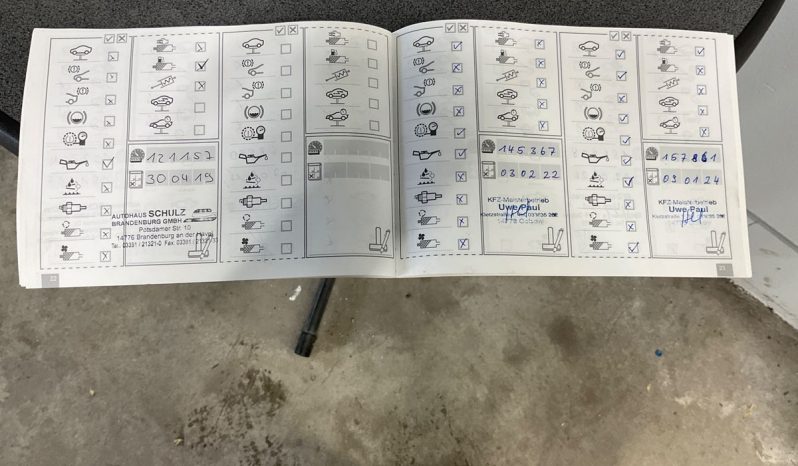 121157
30 04 19
AUTOHAUS SCHULZ
BRANDENBURG GMBH
Potsdamer Str. 10
14776 Brandenburg an der Havel
22
145 367
03 02 22
KFZ-Meisterbetrieb
Uwe Paul
157 861
09 01 24
KFZ-Meisterbetrieb
Uwe Paul
23